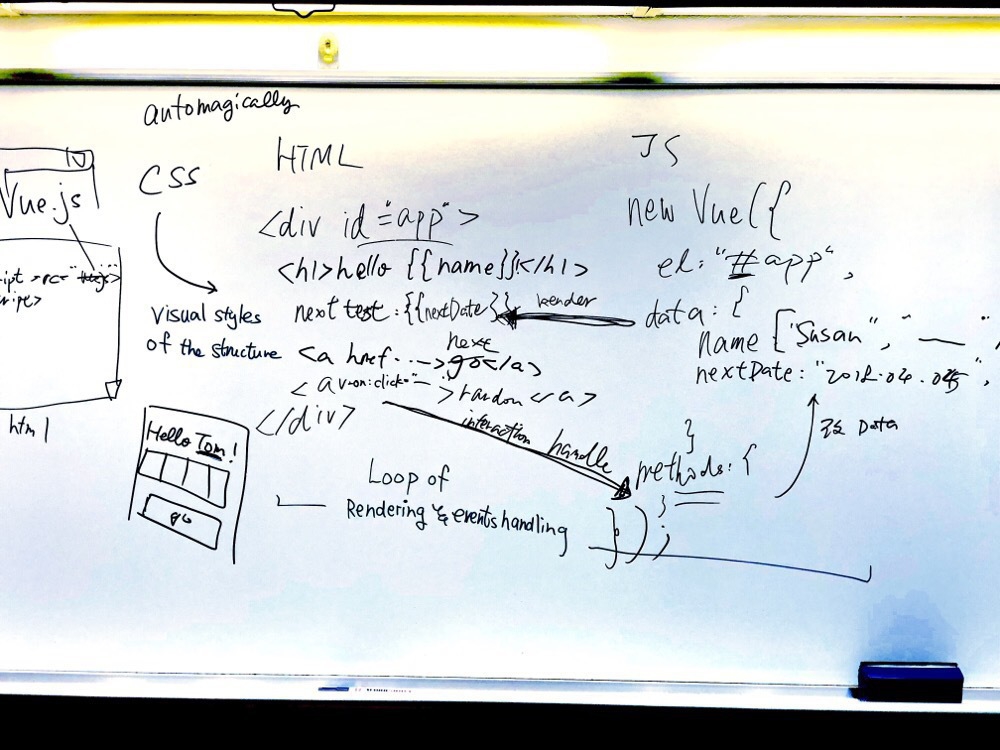 automagically
Vue.js
html
CSS
visual styles
of the structure
Hello Tom!
go
HTML
<div id="app">
<h1>hello {{name}}</h1>
next test: {{nextDate}}
render
next
<a href...>go</a>
<a v-on:click="—">random</a>
</div>
interaction handle
Loop of
Rendering & events handling
JS
new Vue({
el: "#app",
data: {
name ["Susan", "—",
nextDate: "2018.04.
}
methods: {
}
});
改 Data